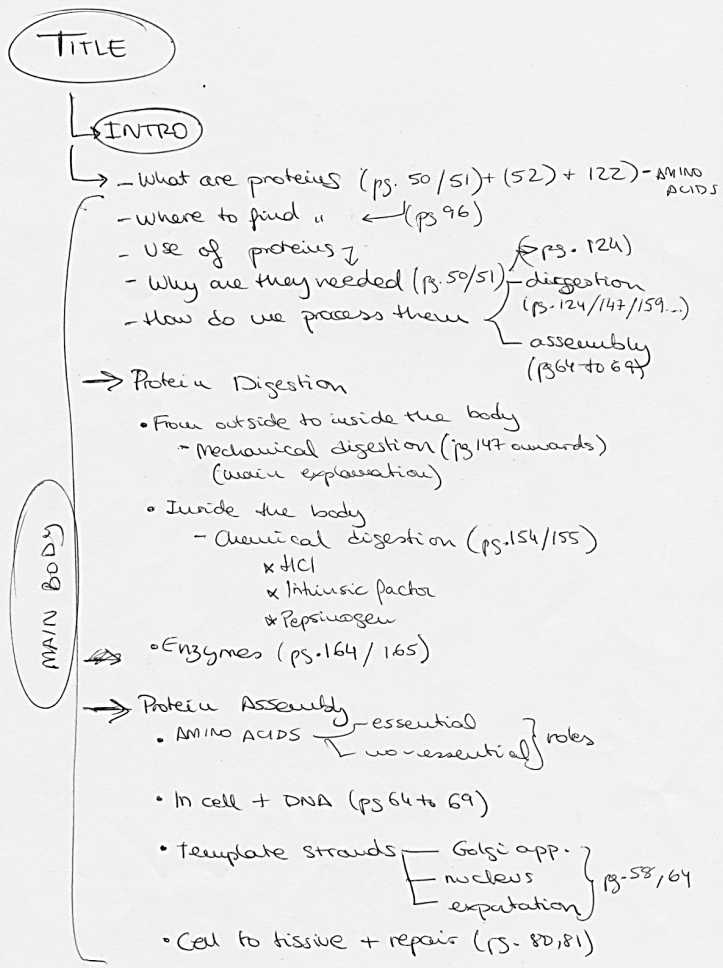 TITLE
INTRO
- What are proteins (pg. 50/51) + (52) + 122) - AMINO ACIDS
- Where to find " (pg 96)
- Use of proteins
(pg. 124)
- Why are they needed (pg. 50/51)
- digestion
(pg. 124/147/159...)
- How do we process them
- assembly
(pg 64 to 69)
→ Protein Digestion
• From outside to inside the body
- Mechanical digestion (pg 147 onwards)
(main explanation)
• Inside the body
- Chemical digestion (pg. 154/155)
* HCl
* Intrinsic factor
* Pepsinogen
• Enzymes (pg. 164/165)
MAIN BODY
→ Protein Assembly
• AMINO ACIDS - essential
- no-essential } roles
• In cell + DNA (pg 64 to 69)
• Template strands - Golgi app.
- nucleus } pg. 58, 64
- exportation
• Cell to tissive + repair (pg. 80,81)